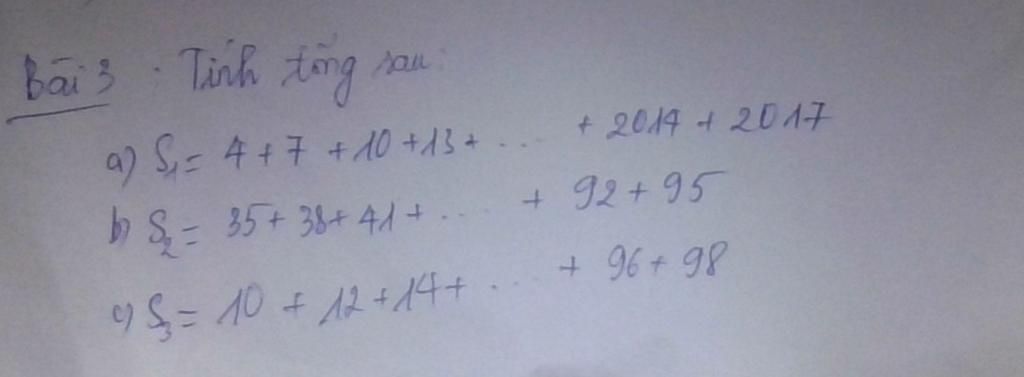 Bài 3 : Tính tổng sau:
a) S₁ = 4 + 7 + 10 + 13 + .... + 2014 + 2017
b) S₂ = 35 + 38 + 41 + .... + 92 + 95
c) S₃ = 10 + 12 + 14 + .... + 96 + 98